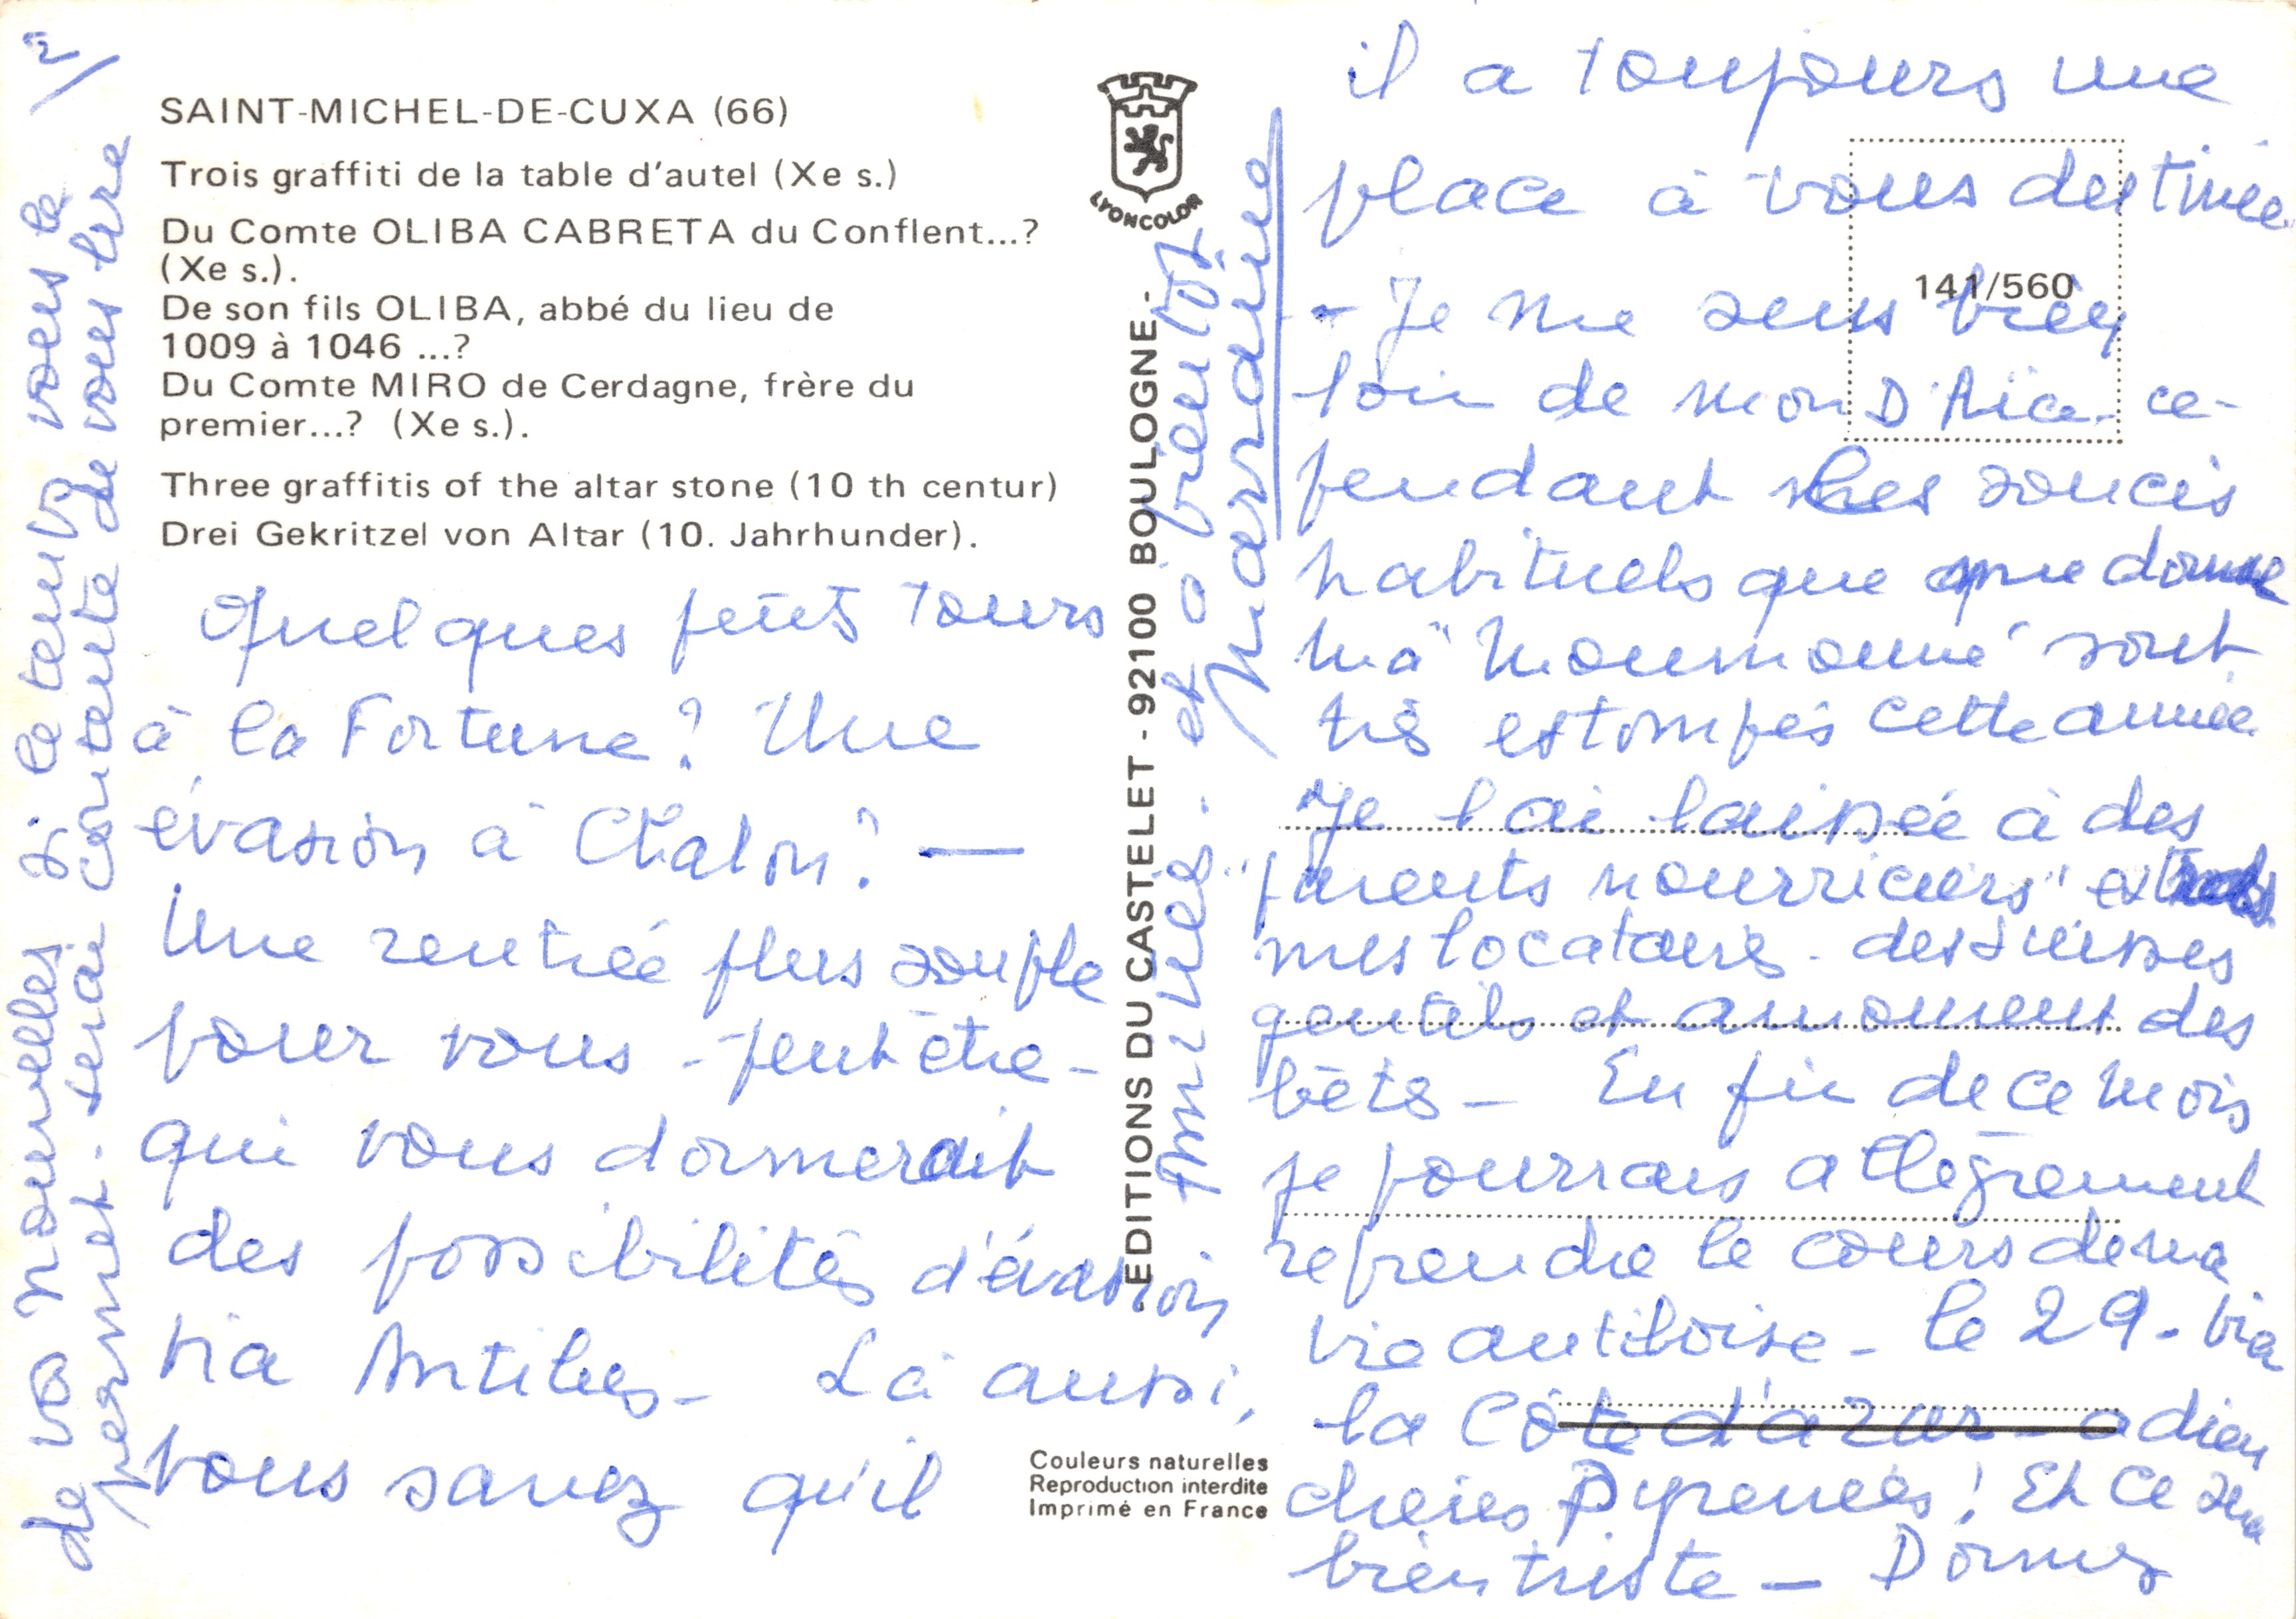 SAINT-MICHEL-DE-CUXA (66)
Trois graffiti de la table d'autel (Xe s.)
Du Comte OLIBA CABRETA du Conflent...?
(Xe s.).
De son fils OLIBA, abbé du lieu de
1009 à 1046 ...?
Du Comte MIRO de Cerdagne, frère du
premier...? (Xe s.).
Three graffitis of the altar stone (10 th centur)
Drei Gekritzel von Altar (10. Jahrhunder).
Quelques petits tours
à la Fortune? Une
évasion à Chalon? —
Une rentrée plus souple
pour vous - peut être -
qui vous donnerait
des possibilités d'évasion
via Antilles - Là aussi,
vous savez qu'il
LYONCOLOR
EDITIONS DU CASTELET - 92100 BOULOGNE -
Couleurs naturelles
Reproduction interdite
Imprimé en France
141/560
il a toujours une
place à vous destinée
- Je me sens bien
loin de mon D'Aïca - ce-
pendant les soucis
habituels que me donne
ma "Moumoune" sont
très estompés cette année
Je l'ai laissée à des
"parents nourriciers"
mes locataires - des suisses
gentils et aimant des
bêtes - En fin de ce mois
je pourrais allégrement
reprendre le cours de ma
vie antilloise - le 29 - via
la Côte d'azur - adieu
chères Pyrénées! Et ce sera
bien triste - Donnez
de vos nouvelles si le temps vous le
permet - serai contente de vous lire
Amitiés - et à bientôt
Marraine